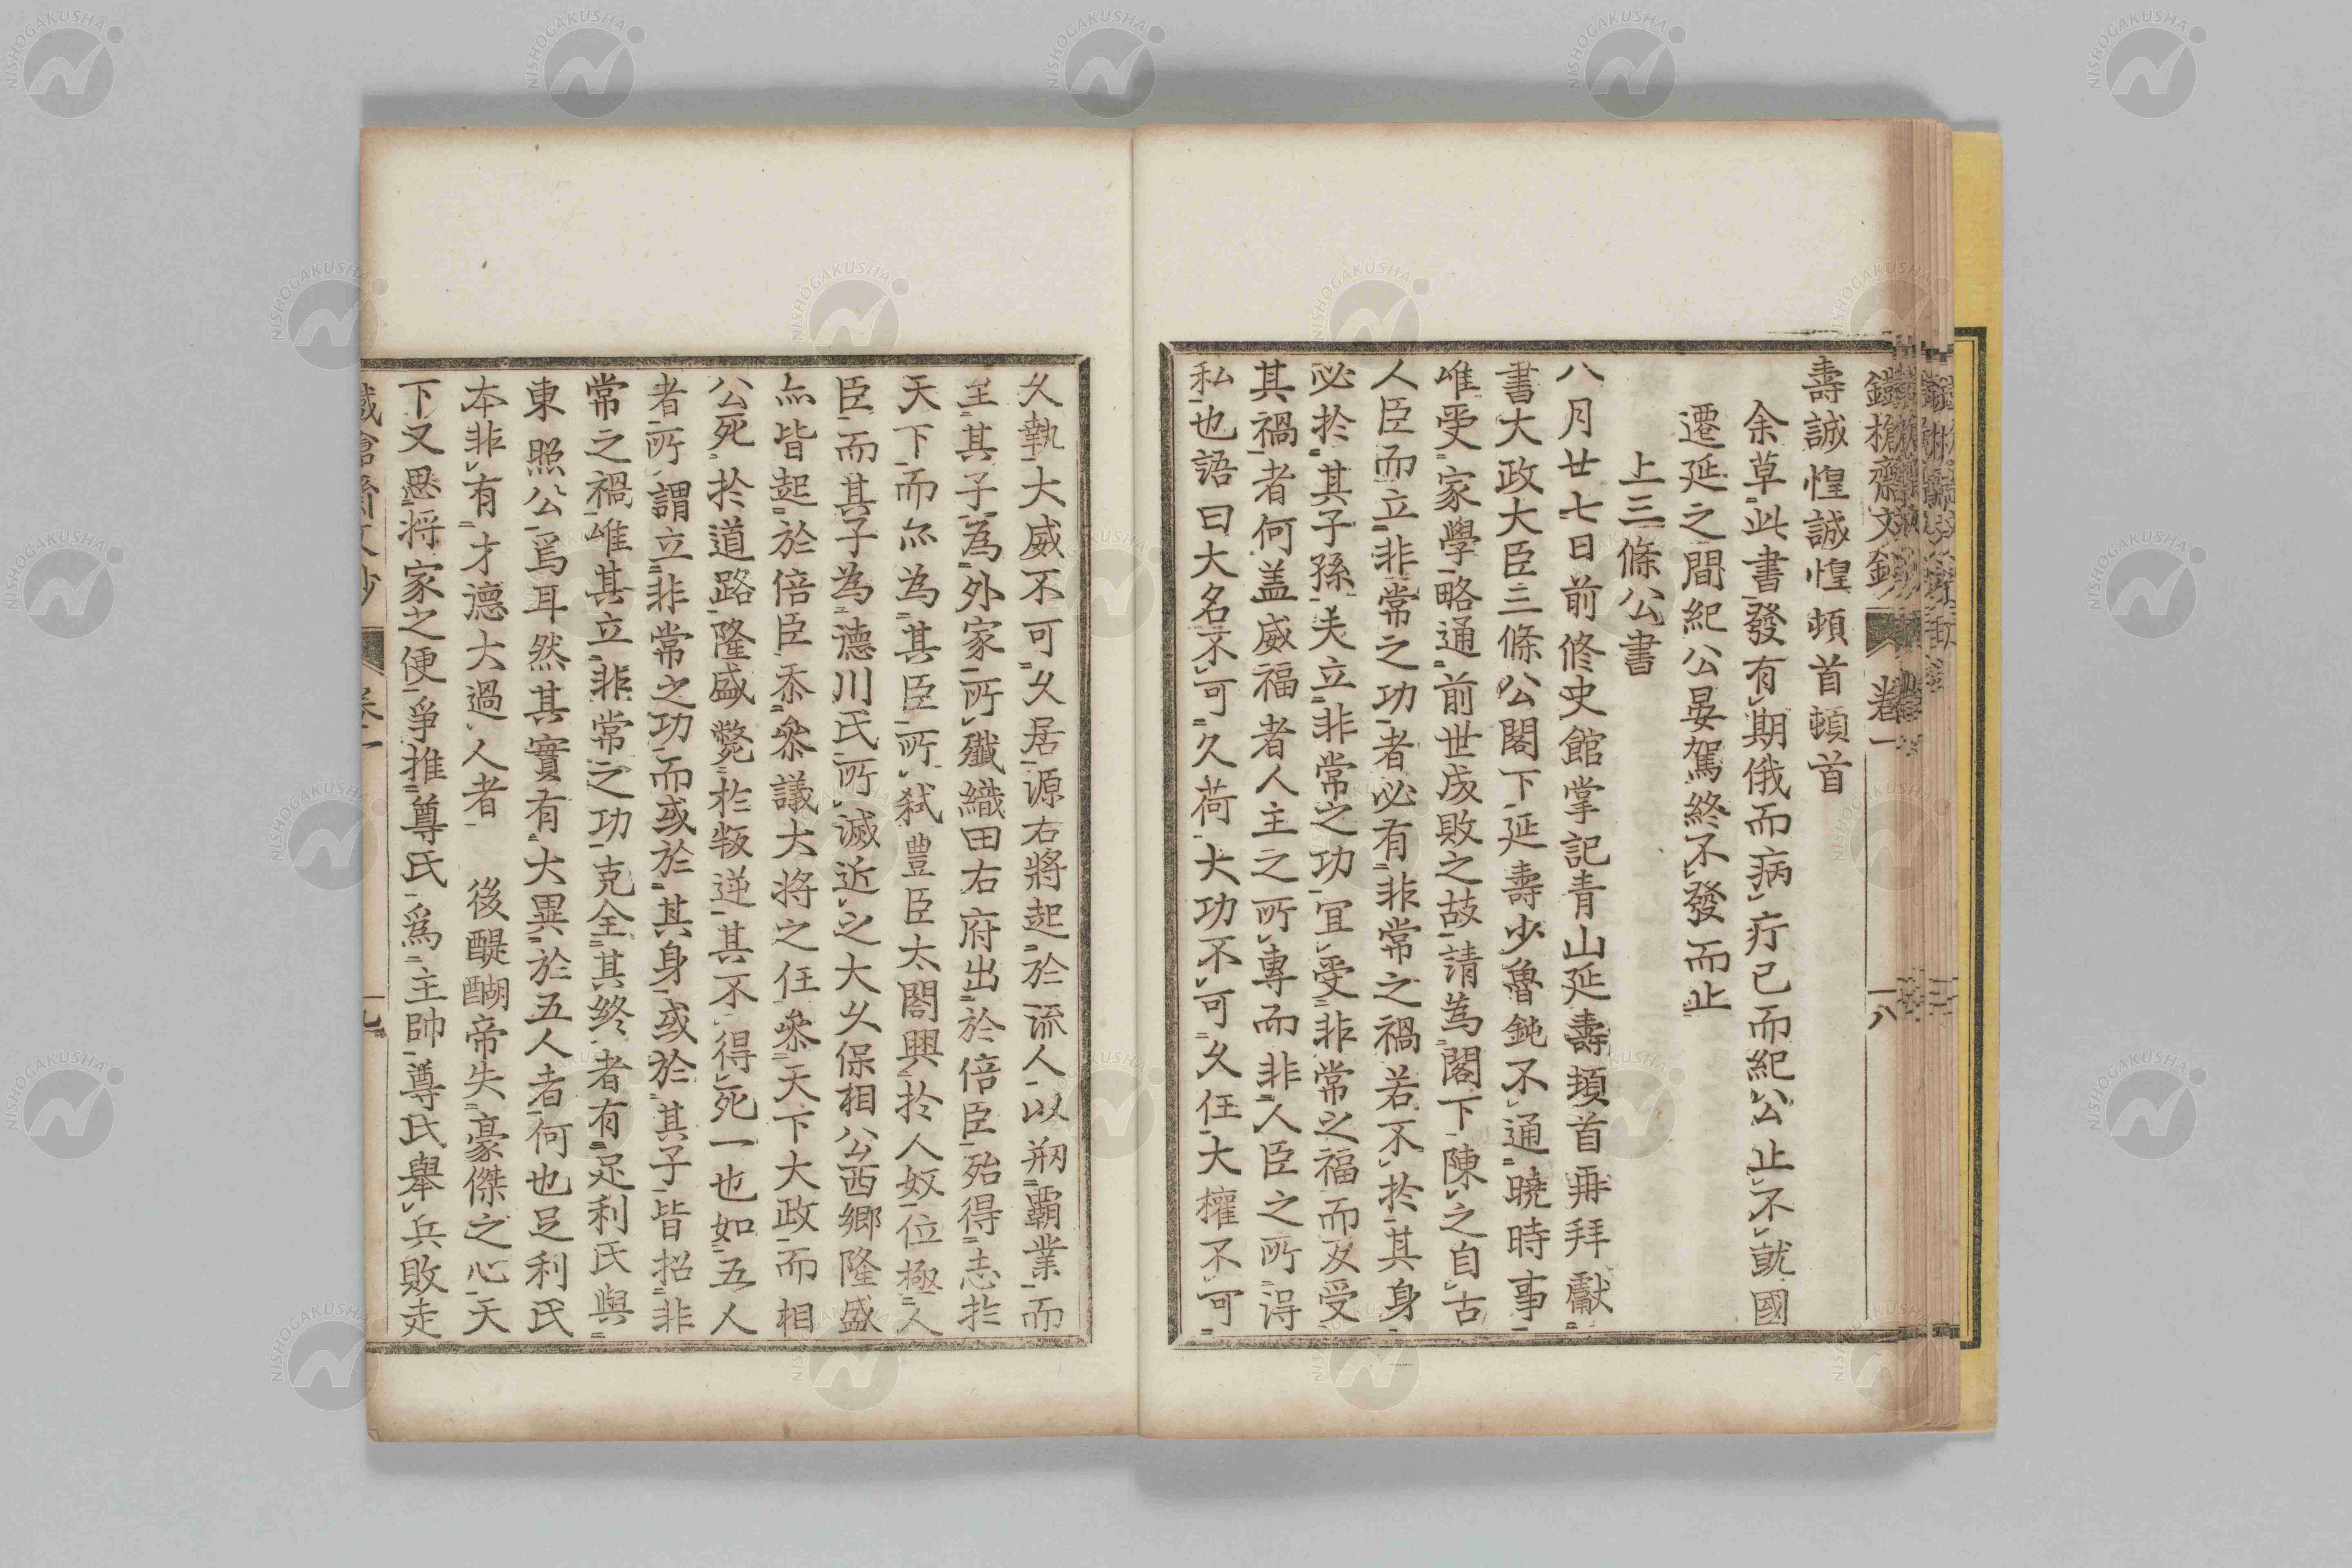 鐵槍齋文鈔 卷一 一八
壽誠惶誠惶頓首頓首
余草此書發有期俄而病疔已而紀公止不就國
遷延之間紀公晏駕終不發而止
上三條公書
八月廿七日前修史館掌記青山延壽頓首再拜獻
書大政大臣三條公閣下延壽少魯鈍不通曉時事
唯受家學略通前世成敗之故請為閣下陳之自古
人臣而立非常之功者必有非常之禍若不於其身
必於其子孫夫立非常之功宜受非常之福而反受
其禍者何盖威福者人主之所專而非人臣之所得
私也語曰大名不可久荷大功不可久任大權不可
久執大威不可久居源右將起於流人以剏覇業而
至其子為外家所殲織田右府出於倍臣殆得志於
天下而亦為其臣所弑豊臣太閤興於人奴位極人
臣而其子為德川氏所滅近之大久保相公西鄉隆盛
亦皆起於倍臣忝叅議大將之任叅天下大政而相
公死於道路隆盛斃於叛逆其不得死一也如五人
者所謂立非常之功而或於其身或於其子皆招非
常之禍唯其立非常之功克全其終者有足利氏與
東照公爲耳然其實有大異於五人者何也足利氏
本非有才德大過人者 後醍醐帝失豪傑之心天
下又思將家之便爭推尊氏爲主帥尊氏舉兵敗走
NISHOGAKUSHA